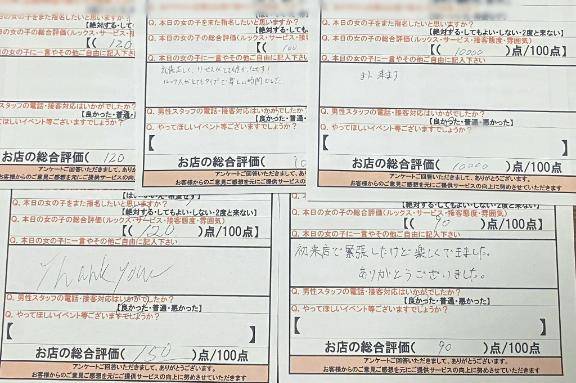 Q. 本日の女の子をまた指名したいと思いますか?
【絶対する・
Q. 本日の女の子の総合評価(ルックス・サービス・
【( 120
Q. 本日の女の子に一言やその他ご自由に記入下さい
Q. 男性スタッフの電話・接客対応はいかがでしたか?
【良かった・普通・
Q. やってほしいイベント等ございますでしょうか?
お店の総合評価( 120
アンケートご回答いただきまして、
お客様からのご意見ご感想を元にご提供サービスの
Q. 本日の女の子をまた指名したいと思いますか?
【絶対する・しても
Q. 本日の女の子の総合評価(ルックス・サービス・接
【( 100
Q. 本日の女の子に一言やその他ご自由に記入下さい
Q. 男性スタッフの電話・接客対応はいかがでしたか?
【良かった・普通・
Q. やってほしいイベント等ございますでしょうか?
お店の総合評価(
アンケートご回答いただきまして、あり
お客様からのご意見ご感想を元にご提供サービスの
Q. 本日の女の子をまた指名したいと思いますか?
【絶対する・してもよい・しない・2度と来ない】
Q. 本日の女の子の総合評価(ルックス・サービス・接客態度・雰囲気)
【( 10000 )点/100点】
Q. 本日の女の子に一言やその他ご自由に記入下さい
また 来ます
Q. 男性スタッフの電話・接客対応はいかがでしたか?
【良かった・普通・悪かった】
Q. やってほしいイベント等ございますでしょうか?
【 】
お店の総合評価( 10000 )点/100点
アンケートご回答いただきまして、ありがとうございます。
お客様からのご意見ご感想を元にご提供サービスの向上に努めさせていただきます
【絶対する・してもよい・しない・2度と来ない】
Q. 本日の女の子の総合評価(ルックス・サービス・接客態度・雰囲気)
【( 120 )点/100点】
Q. 本日の女の子に一言やその他ご自由に記入下さい
Thank you
Q. 男性スタッフの電話・接客対応はいかがでしたか?
【良かった・普通・悪かった】
Q. やってほしいイベント等ございますでしょうか?
【 】
お店の総合評価( 150 )点/100点
アンケートご回答いただきまして、ありがとうございます。
お客様からのご意見ご感想を元にご提供サービスの向上に努めさせていただきます
【絶対する・してもよい・しない・2度と来ない】
Q. 本日の女の子の総合評価(ルックス・サービス・接客態度・雰囲気)
【( 90 )点/100点】
Q. 本日の女の子に一言やその他ご自由に記入下さい
初来店で緊張したけど楽しくできました。
ありがとうございました。
Q. 男性スタッフの電話・接客対応はいかがでしたか?
【良かった・普通・悪かった】
Q. やってほしいイベント等ございますでしょうか?
【 】
お店の総合評価( 90 )点/100点
アンケートご回答いただきまして、ありがとうございます。
お客様からのご意見ご感想を元にご提供サービスの向上に努めさせていただきます